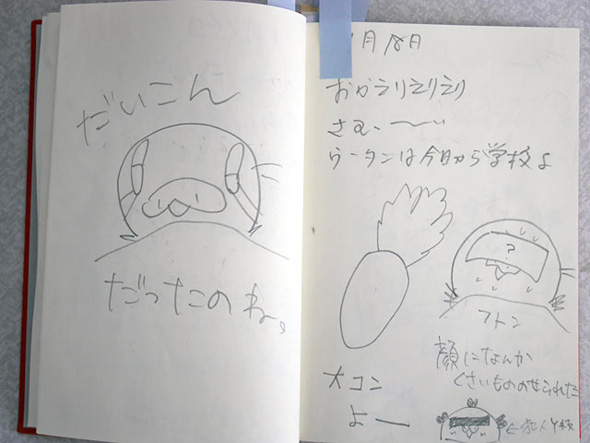 だいこん
だったのね。
月18日
おかえりえりえり
さむ、〜い
ウータンは今日から学校よ
?
フトン
顔になんか
くさいもののせられた
大コン
よー